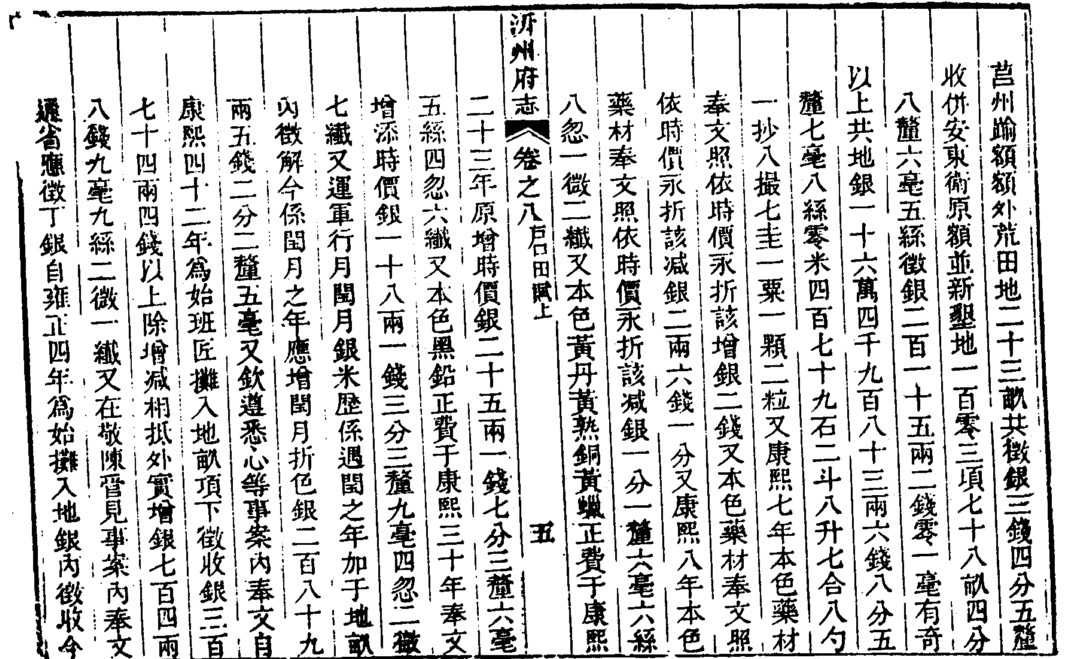 莒州踰額額外荒田地二十三畝共徵銀三錢四分五釐
收併安東衛原額並新墾地一百零三頃七十八畝四分
八釐六毫五絲徵銀二百一十五兩二錢零一毫有奇
以上共地銀一十六萬四千九百八十三兩六錢八分五
釐七毫八絲零米四百七十九石二斗八升七合八勺
一抄八撮七圭一粟一顆二粒又康熙七年本色藥材
奉文照依時價永折該增銀二錢又本色藥材奉文照
依時價永折該減銀二兩六錢一分又康熙八年本色
藥材奉文照依時價永折該減銀一分一釐六毫六絲
八忽一微二纖又本色黃丹黃熟銅黃蠟正費于康熙
沂州府志 卷之八 戶口田賦上 五
二十三年原增時價銀二十五兩一錢七分三釐六毫
五絲四忽六纖又本色黑鉛正費于康熙三十年奉文
增添時價銀一十八兩一錢三分三釐九毫四忽二微
七纖又運軍行月閏月銀米歷係遇閏之年加于地畝
內徵解今係閏月之年應增閏月折色銀二百八十九
兩五錢二分二釐五毫又欽遵悉心等事案內奉文自
康熙四十二年為始班匠攤入地畝項下徵收銀三百
七十四兩四錢以上除增減相抵外實增銀七百四兩
八錢九毫九絲二微一纖又在敬陳管見事案內奉文
通省應徵丁銀自雍正四年為始攤入地銀內徵收今